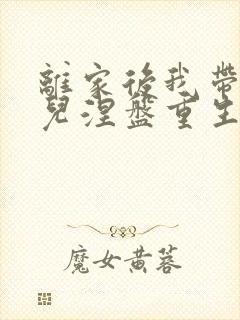 離家後我帶
兒涅盤重生
魔女黄蓉